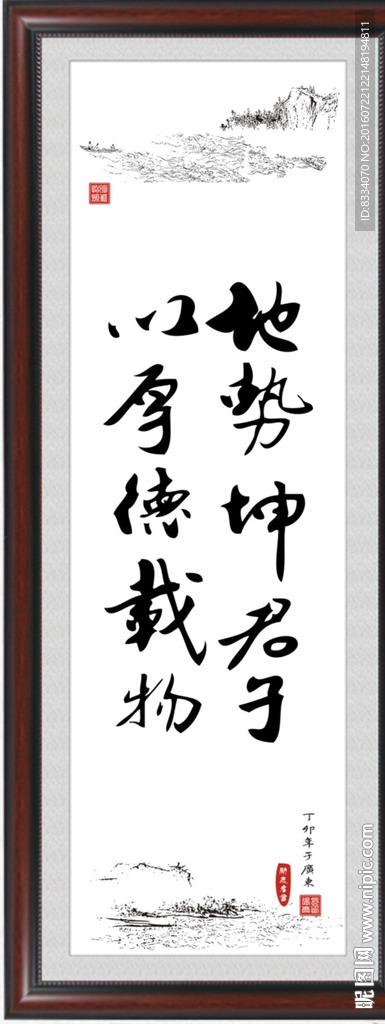 地勢坤君子
以厚德載物
丁卯年于廣東
ID:8334070 NO:20160722122148194811
昵图网 www.nipic.com